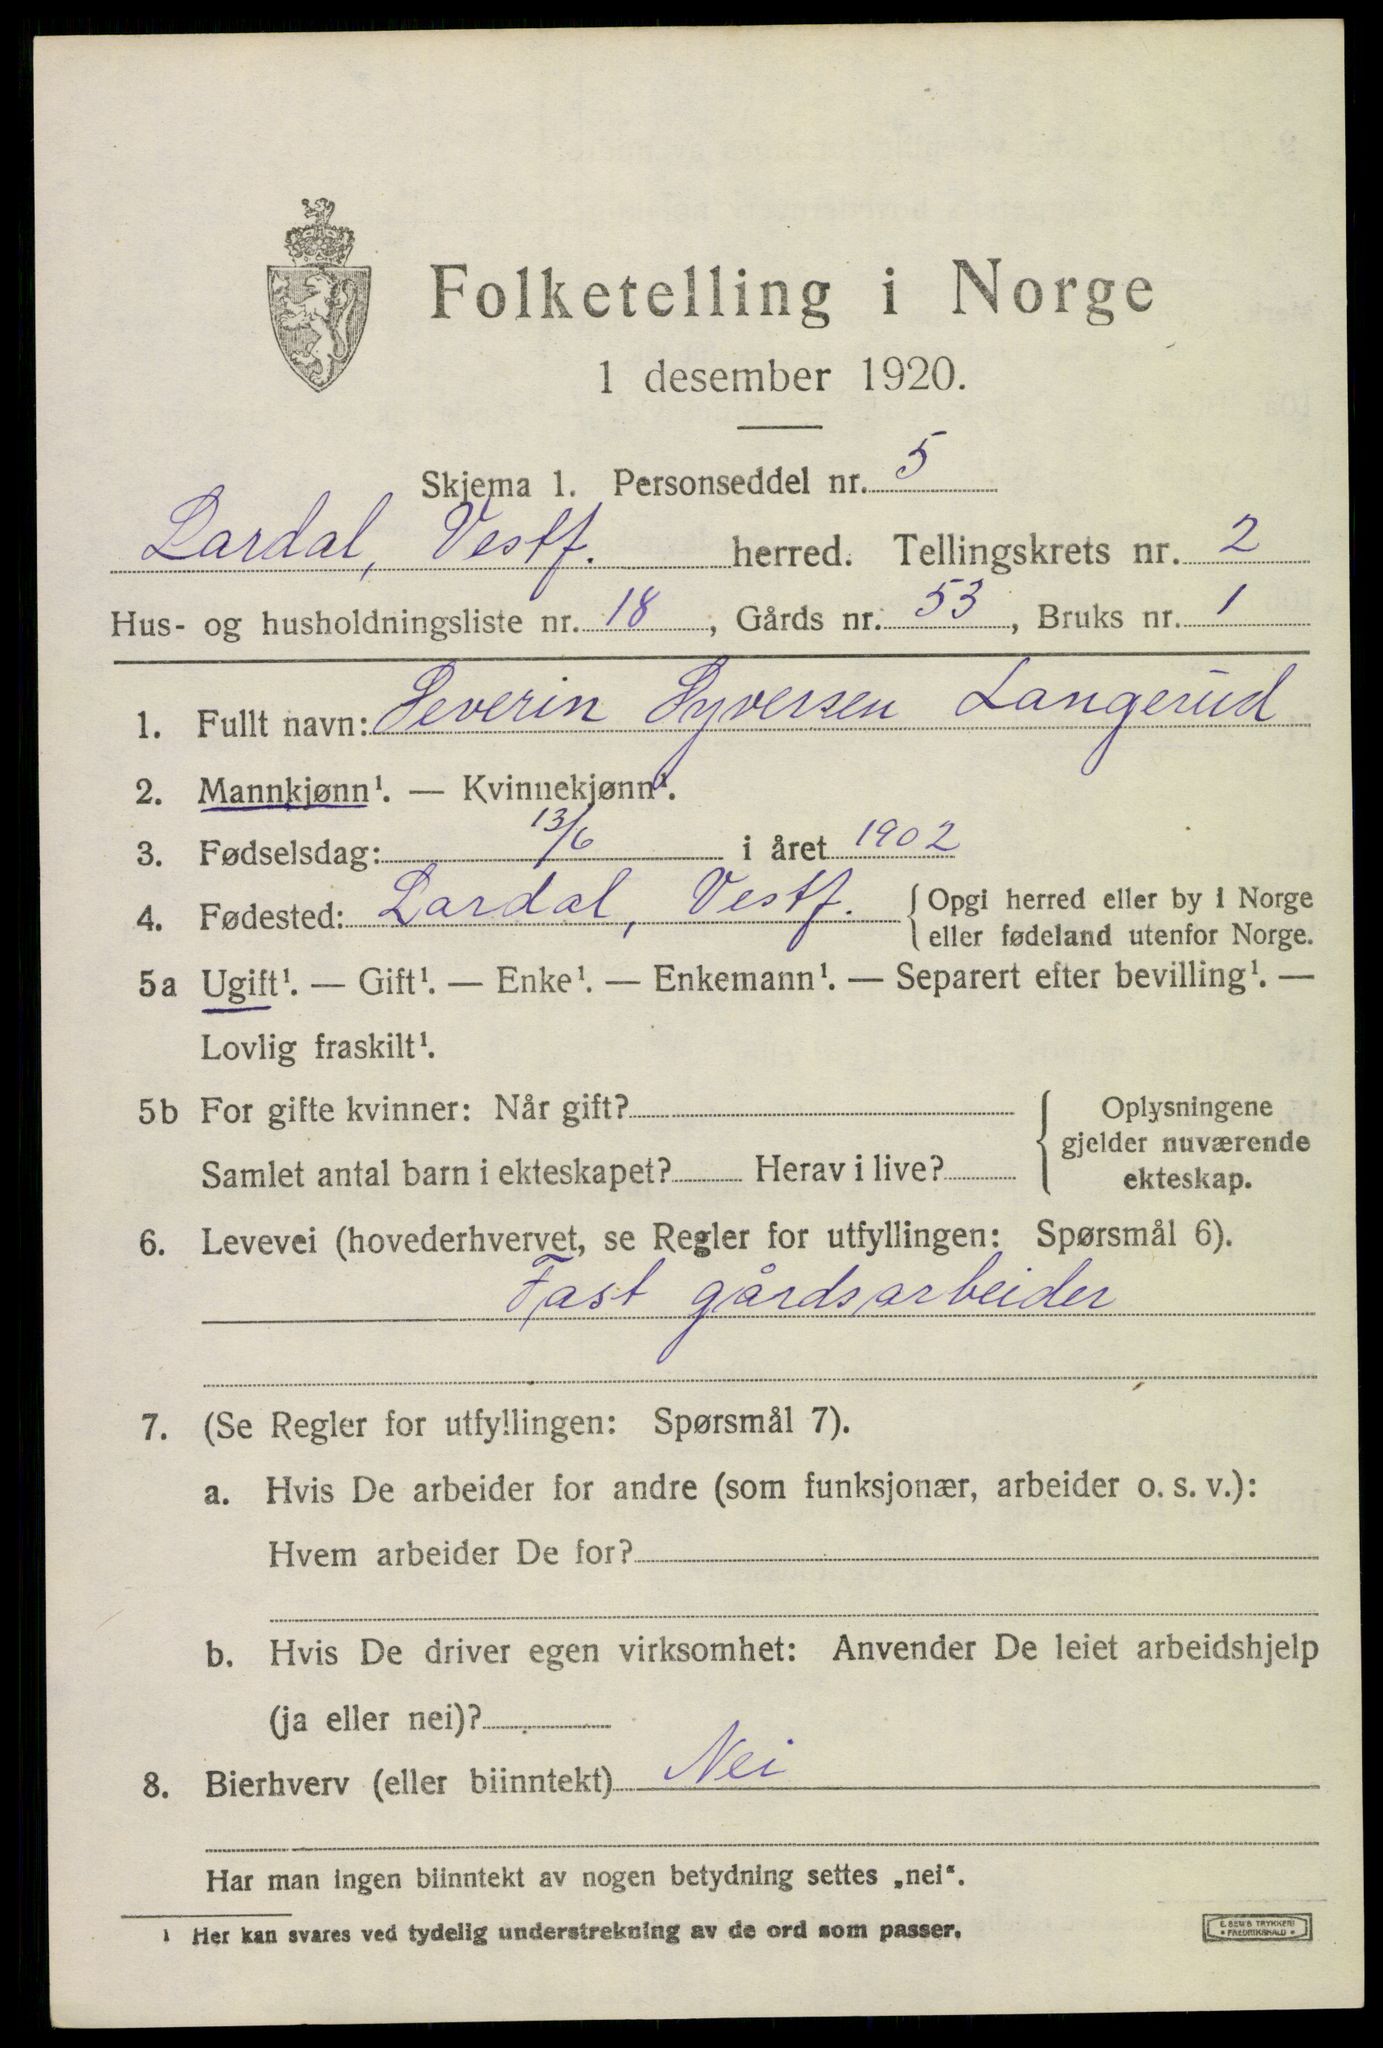 Folketelling i Norge
1 desember 1920.
Skjema 1. Personseddel nr. 5
Lardal, Vestf. herred. Tellingskrets nr. 2
Hus- og husholdningsliste nr. 18, Gårds nr. 53, Bruks nr. 1
1. Fullt navn: Severin Syversen Langerud
2. Mannkjønn¹. — Kvinnekjønn¹.
3. Fødselsdag: 13/6 i året 1902
4. Fødested: Lardal, Vestf. { Opgi herred eller by i Norge
eller fødeland utenfor Norge.
5a Ugift¹. — Gift¹. — Enke¹. — Enkemann¹. — Separert efter bevilling¹. —
Lovlig fraskilt¹.
5b For gifte kvinner: Når gift? { Oplysningene
gjelder nuværende
Samlet antal barn i ekteskapet? Herav i live? ekteskap.
6. Levevei (hovederhvervet, se Regler for utfyllingen: Spørsmål 6).
Fast gårdsarbeider
7. (Se Regler for utfyllingen: Spørsmål 7).
a. Hvis De arbeider for andre (som funksjonær, arbeider o. s. v.):
Hvem arbeider De for?
b. Hvis De driver egen virksomhet: Anvender De leiet arbeidshjelp
(ja eller nei)?
8. Bierhverv (eller biinntekt) Nei
Har man ingen biinntekt av nogen betydning settes „nei“.
¹ Her kan svares ved tydelig understrekning av de ord som passer.
E. SEM'S TRYKKERI
• FREDRIKSHALD •